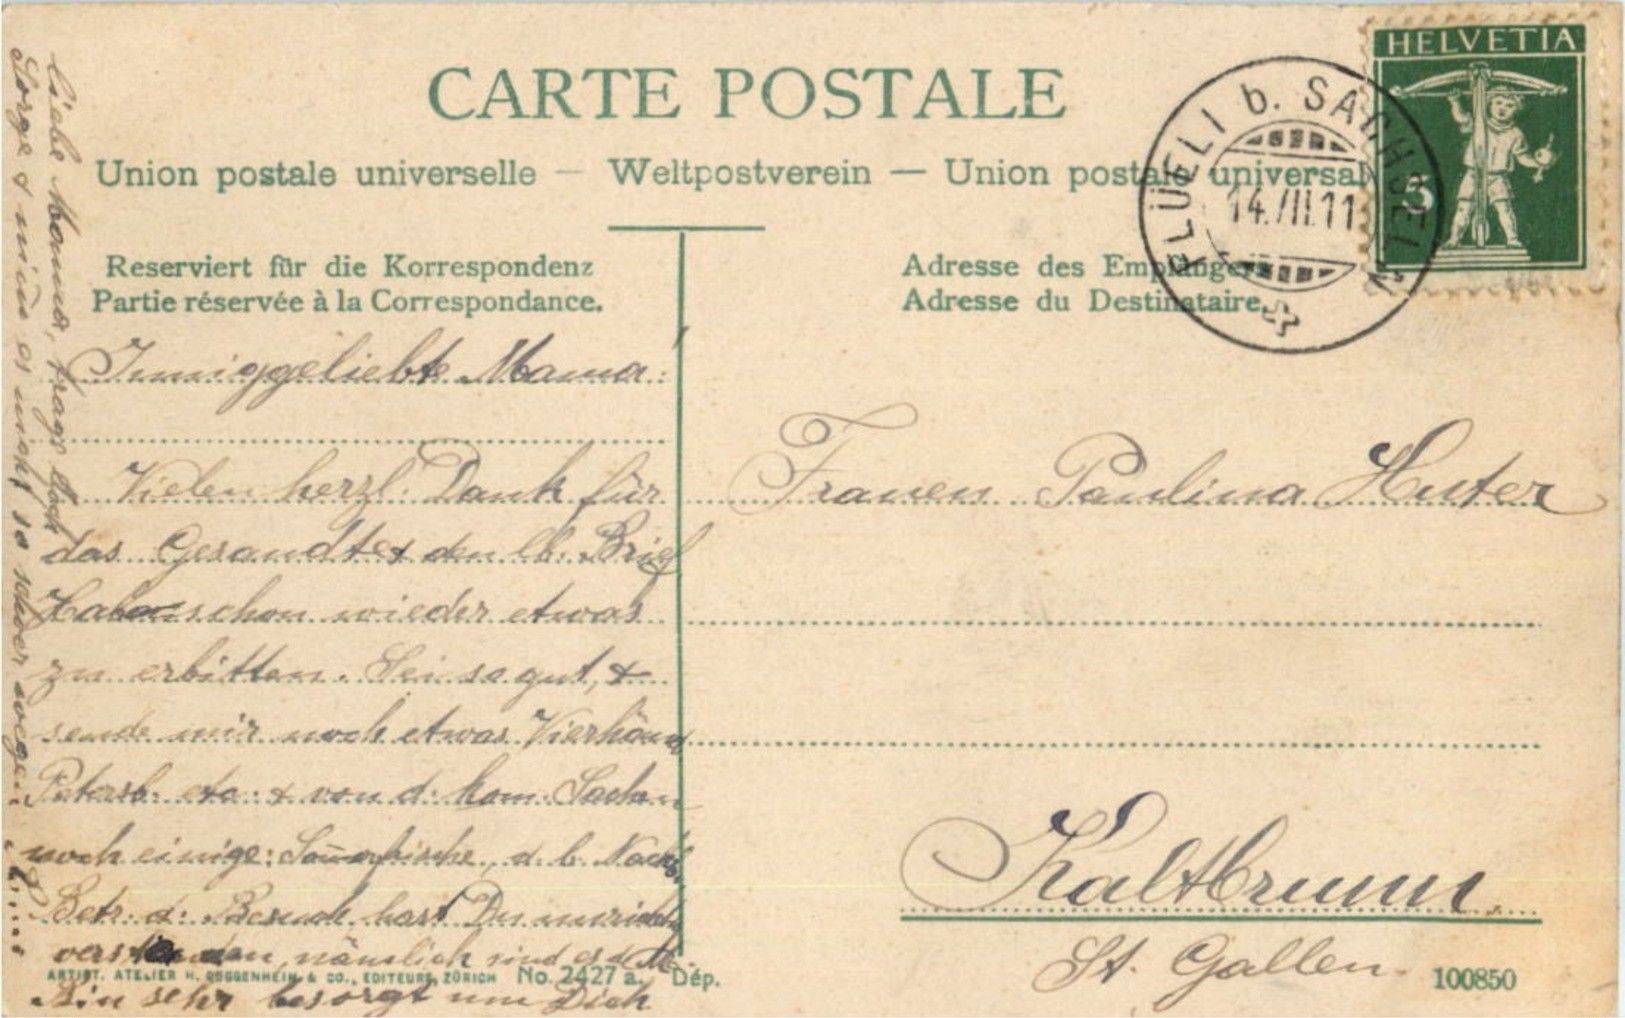 CARTE POSTALE
Union postale universelle — Weltpostverein — Union postale universale
Reserviert für die Korrespondenz
Partie réservée à la Correspondance.
Adresse des Empfängers
Adresse du Destinataire.
HELVETIA
5
FLÜELI b. SACHSELN
14.VII.11
Inniggeliebte Mama.
Vielen herzl. Dank für
das Gesandte & den lb. Brief
Habe schon wieder etwas
zu erbitten. Sei so gut, &
sende mir noch etwas Vierhänd
Petersb. etc. & von d. kom. Sachen
noch einige: d. b.
Betr. d. Besuch hast Du unrichtig
verstanden, nämlich sind es d.
Bin sehr besorgt um Dich
Liebe Mama, trage doch
Sorge & nicht so schwer
Frauen Paulina Huter
Kaltbrunn.
St. Gallen.
ARTIST. ATELIER H. GUGGENHEIM & CO., EDITEURS, ZÜRICH No. 2427 a. Dép.
100850